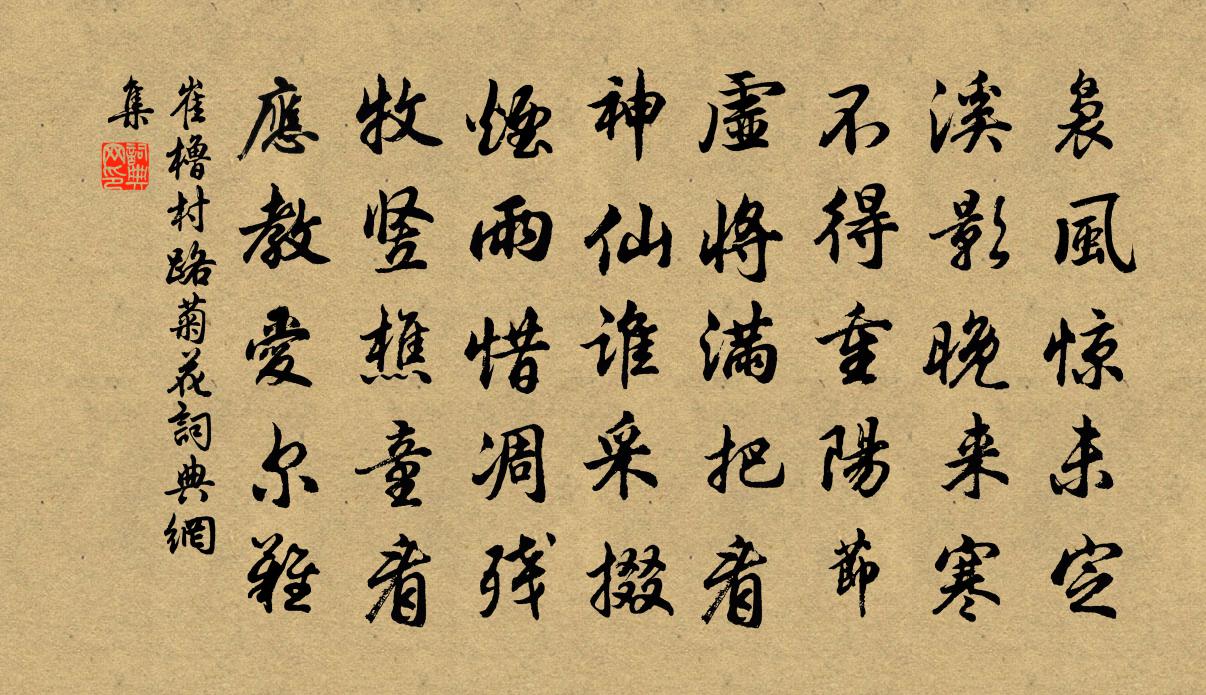 裊風惊未定
溪影晚来寒
不得重陽節
虛將滿把看
神仙誰采掇
煙雨惜凋残
牧竪樵童看
應教愛尔難
崔櫓村路菊花詞典網
集
詞典网印